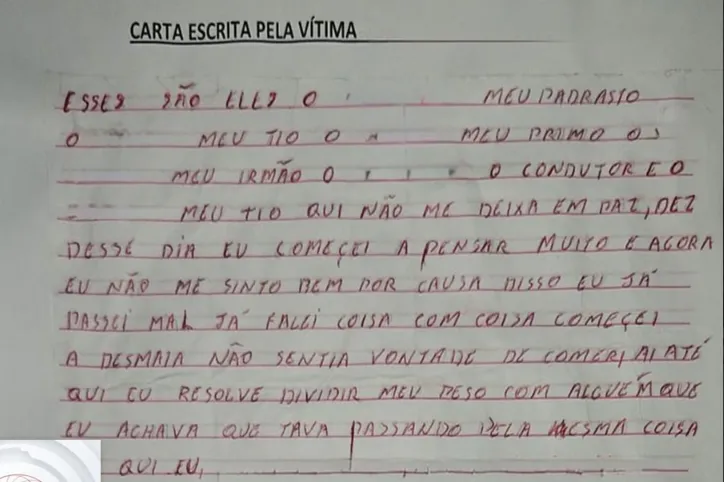 CARTA ESCRITA PELA VÍTIMA
ESSES SÃO ELES O MEU PADRASTO
O MEU TIO O MEU PRIMO OS
MEU IRMÃO O O CONDUTOR E O
MEU TIO QUI NÃO ME DEIXA EM PAZ, DEZ
DESSE DIA EU COMEÇEI A PENSAR MUITO E AGORA
EU NÃO ME SINTO BEM POR CAUSA DISSO EU JÁ
PASSEI MAL JÁ FALEI COISA COM COISA COMEÇEI
A DESMAIA NÃO SENTIA VONTADE DE COMER, AI ATÉ
QUI EU RESOLVE DIVIDIR MEU PESO COM ALGUÉM QUE
EU ACHAVA QUE TAVA PASSANDO PELA MESMA COISA
QUI EU,